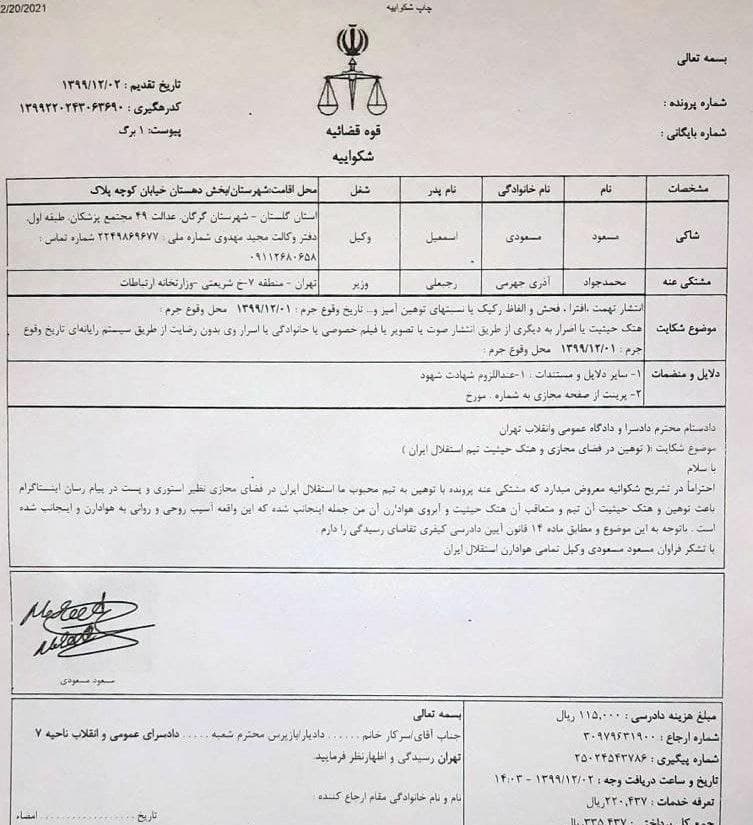 2/20/2021
چاپ شکواییه
بسمه تعالی
شماره پرونده :
شماره بایگانی :
قوه قضائیه
شکواییه
تاریخ تقدیم : ۱۳۹۹/۱۲/۰۲
کدرهگیری : ۱۳۹۹۲۲۰۲۴۳۰۶۳۶۹۰
پیوست: ۱ برگ
مشخصات نام نام خانوادگی نام پدر شغل محل اقامت:شهرستان/بخش دهستان خیابان کوچه پلاک
شاکی مسعود مسعودی اسمعیل وکیل
استان گلستان - شهرستان گرگان. عدالت ۴۹ مجتمع پزشکان. طبقه اول.
دفتر وکالت مجید مهدوی شماره ملی : ۲۲۴۹۸۶۹۶۷۷ شماره تماس :
۰۹۱۱۲۶۸۰۶۵۸
مشتکی عنه محمدجواد آذری جهرمی رجبعلی وزیر تهران - منطقه ۷-خ شریعتی -وزارتخانه ارتباطات
موضوع شکایت
انتشار تهمت ،افترا ، فحش و الفاظ رکیک یا نسبتهای توهین آمیز و... تاریخ وقوع جرم : ۱۳۹۹/۱۲/۰۱ محل وقوع جرم :
هتک حیثیت یا اضرار به دیگری از طریق انتشار صوت یا تصویر یا فیلم خصوصی یا خانوادگی یا اسرار وی بدون رضایت از طریق سیستم رایانه‌ای تاریخ وقوع
جرم : ۱۳۹۹/۱۲/۰۱ محل وقوع جرم :
دلایل و منضمات
۱- سایر دلایل و مستندات : ۱-عنداللزوم شهادت شهود
۲- پرینت از صفحه مجازی به شماره . مورخ
دادستام محترم دادسرا و دادگاه عمومی وانقلاب تهران
موضوع شکایت :( توهین در فضای مجازی و هتک حیثیت تیم استقلال ایران )
با سلام
احتراماً در تشریح شکوائیه معروض میدارد که مشتکی عنه پرونده با توهین به تیم محبوب ما استقلال ایران در فضای مجازی نظیر استوری و پست در پیام رسان اینستاگرام
باعث توهین و هتک حیثیت آن تیم و متعاقب آن هتک حیثیت و آبروی هوادارن آن من جمله اینجانب شده که این واقعه آسیب روحی و روانی به هوادارن و اینجانب شده
است . باتوجه به این موضوع و مطابق ماده ۱۴ قانون آیین دادرسی کیفری تقاضای رسیدگی را دارم .
با تشکر فراوان مسعود مسعودی وکیل تمامی هوادارن استقلال ایران
مسعود مسعودی
مبلغ هزینه دادرسی : ۱۱۵,۰۰۰ ریال
شماره ارجاع : ۳۰۹۷۹۶۳۱۹۰۰
شماره پیگیری : ۲۵۰۲۴۵۴۳۷۸۶
تاریخ و ساعت دریافت وجه : ۱۳۹۹/۱۲/۰۲ - ۱۴:۰۳
تعرفه خدمات : ۲۲۰,۴۳۷ریال
جمع کل پرداختی : ۳۳۵,۴۳۷ ریال
بسمه تعالی
جناب آقای/سرکار خانم ...... دادیار/بازپرس محترم شعبه ..... دادسرای عمومی و انقلاب ناحیه ۷
تهران رسیدگی و اظهارنظر فرمایید.
نام و نام خانوادگی مقام ارجاع کننده :
تاریخ .................. امضاء